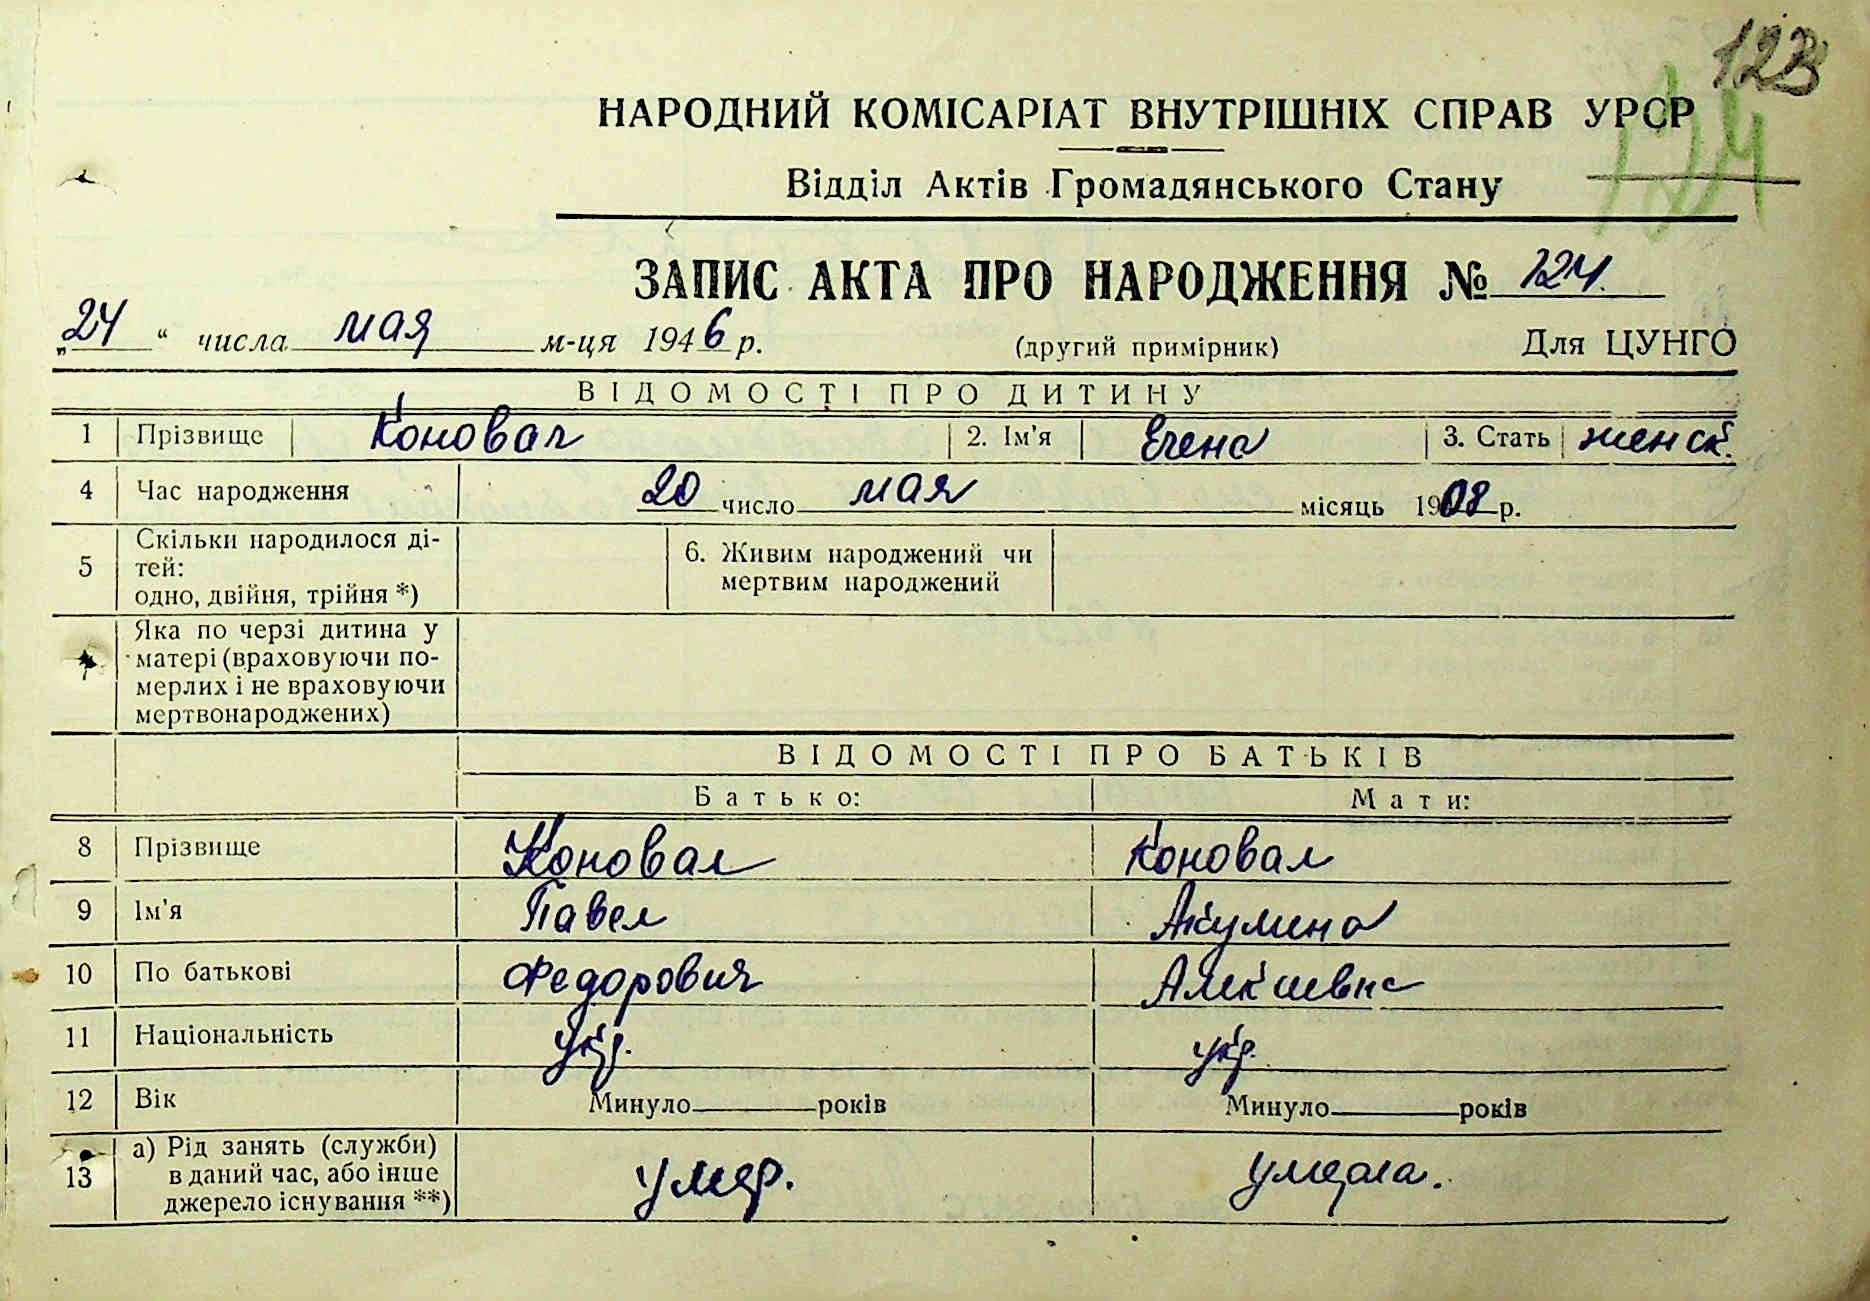 123
НАРОДНИЙ КОМІСАРІАТ ВНУТРІШНІХ СПРАВ УРСР
124
Відділ Актів Громадянського Стану
ЗАПИС АКТА ПРО НАРОДЖЕННЯ № 124.
„24“ числа мая м-ця 1946 р. (другий примірник) Для ЦУНГО
ВІДОМОСТІ ПРО ДИТИНУ
1 Прізвище Коновал 2. Ім'я Елена 3. Стать женск.
4 Час народження 20 число мая місяць 1908 р.
5 Скільки народилося ді-
тей:
одно, двійня, трійня *)
6. Живим народжений чи
мертвим народжений
7 Яка по черзі дитина у
матері (враховуючи по-
мерлих і не враховуючи
мертвонароджених)
ВІДОМОСТІ ПРО БАТЬКІВ
Батько: Мати:
8 Прізвище Коновал Коновал
9 Ім'я Павел Акулина
10 По батькові Федорович Алексеевна
11 Національність укр. укр.
12 Вік Минуло років Минуло років
13 а) Рід занять (служби)
в даний час, або інше
джерело існування **)
умер. умерла.